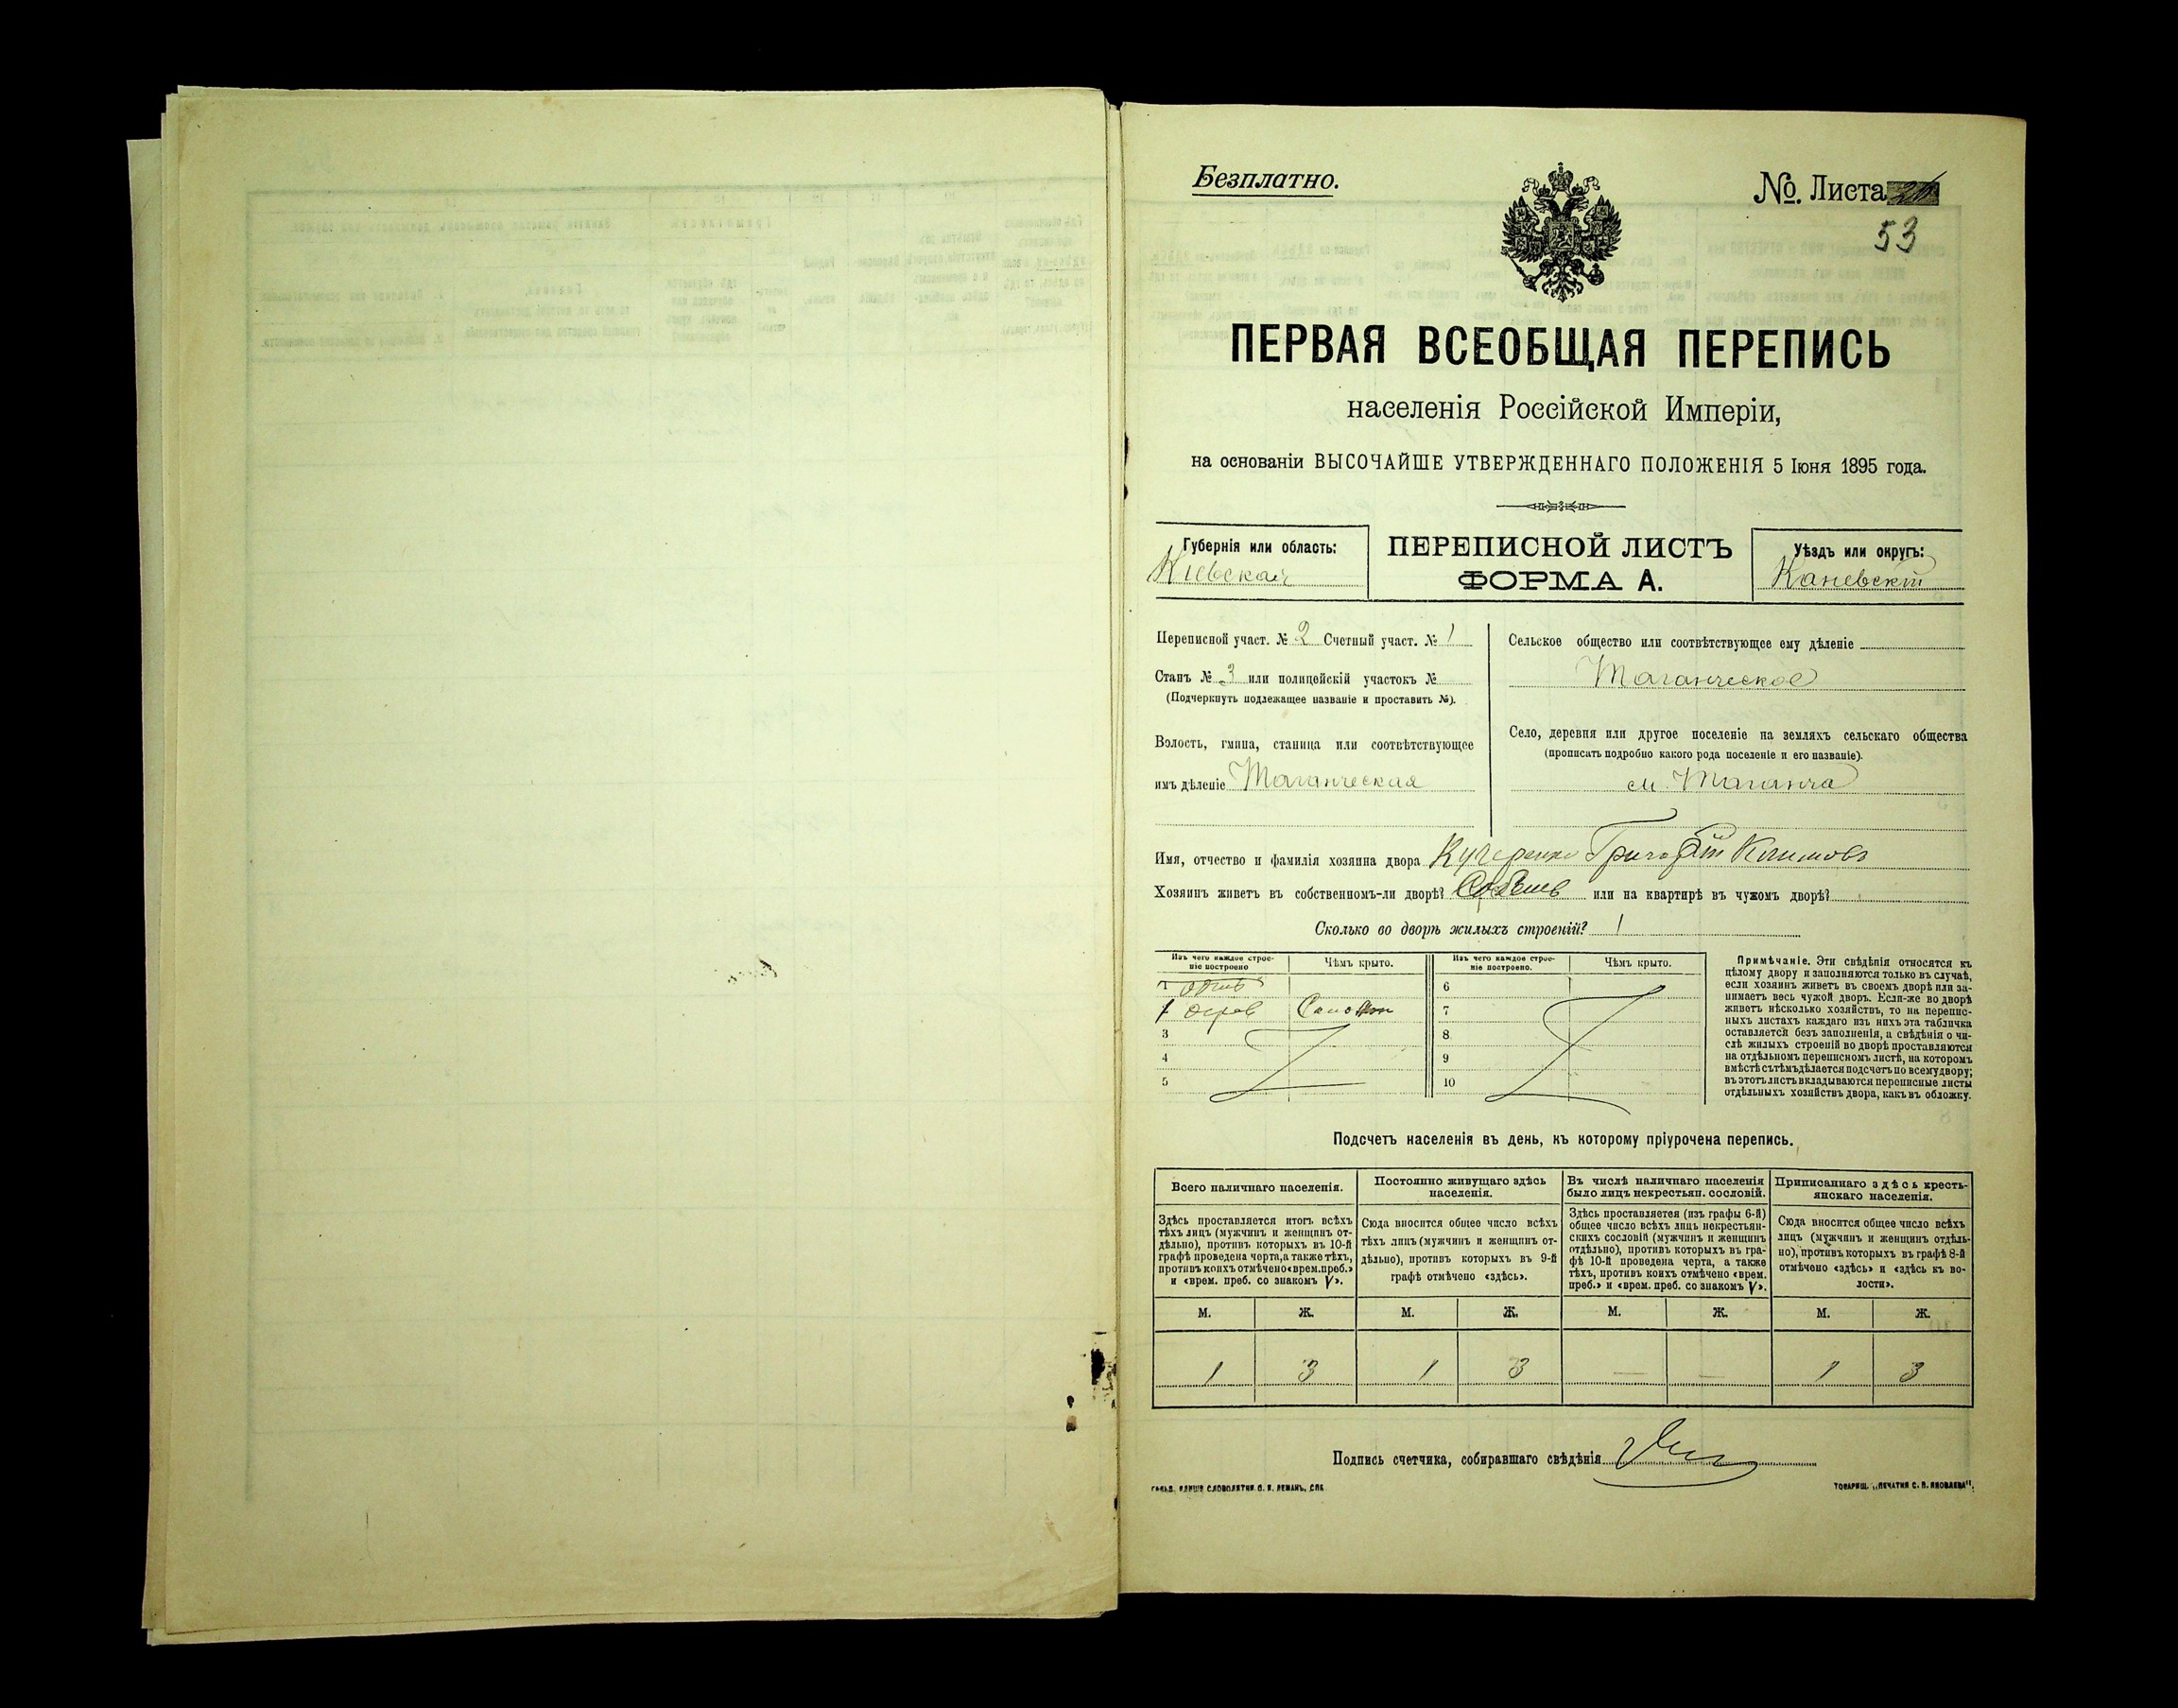 Безплатно.
№. Листа
53
ПЕРВАЯ ВСЕОБЩАЯ ПЕРЕПИСЬ
населенія Россійской Имперіи,
на основаніи ВЫСОЧАЙШЕ УТВЕРЖДЕННАГО ПОЛОЖЕНІЯ 5 Іюня 1895 года.
Губернія или область:
Кіевская
ПЕРЕПИСНОЙ ЛИСТЪ
ФОРМА А.
Уѣздъ или округъ:
Каневскій
Переписной участ. № 2 Счетный участ. № 1
Станъ № 3 или полицейскій участокъ №
(Подчеркнуть подлежащее названіе и проставить №).
Волость, гмина, станица или соотвѣтствующее
имъ дѣленіе Таганческая
Сельское общество или соотвѣтствующее ему дѣленіе
Таганческое
Село, деревня или другое поселеніе на земляхъ сельскаго общества
(прописать подробно какого рода поселеніе и его названіе).
м. Таганча
Имя, отчество и фамилія хозяина двора Кучеренко Григорій Климовъ
Хозяинъ живетъ въ собственномъ-ли дворѣ? или на квартирѣ въ чужомъ дворѣ?
Сколько во дворѣ жилыхъ строеній? 1
Изъ чего каждое строе-
ніе построено
Чѣмъ крыто.
Изъ чего каждое строе-
ніе построено.
Чѣмъ крыто.
1
1 дерев Солом
3
4
5
6
7
8
9
10
Примѣчаніе. Эти свѣдѣнія относятся къ
цѣлому двору и заполняются только въ случаѣ,
если хозяинъ живетъ въ своемъ дворѣ или за-
нимаетъ весь чужой дворъ. Если-же во дворѣ
живетъ нѣсколько хозяйствъ, то на перепис-
ныхъ листахъ каждаго изъ нихъ эта табличка
оставляется безъ заполненія, а свѣдѣнія о чи-
слѣ жилыхъ строеній во дворѣ проставляются
на отдѣльномъ переписномъ листѣ, на которомъ
вмѣстѣ съ тѣмъ дѣлается подсчетъ по всему двору;
въ этотъ листъ вкладываются переписные листы
отдѣльныхъ хозяйствъ двора, какъ въ обложку.
Подсчетъ населенія въ день, къ которому пріурочена перепись.
Всего наличнаго населенія.
Постоянно живущаго здѣсь
населенія.
Въ числѣ наличнаго населенія
было лицъ некрестьян. сословій.
Приписаннаго здѣсь кресть-
янскаго населенія.
Здѣсь проставляется итогъ всѣхъ
тѣхъ лицъ (мужчинъ и женщинъ от-
дѣльно), противъ которыхъ въ 10-й
графѣ проведена черта, а также тѣхъ,
противъ коихъ отмѣчено «врем. преб.»
и «врем. преб. со знакомъ V».
Сюда вносится общее число всѣхъ
тѣхъ лицъ (мужчинъ и женщинъ от-
дѣльно), противъ которыхъ въ 9-й
графѣ отмѣчено «здѣсь».
Здѣсь проставляется (изъ графы 6-й)
общее число всѣхъ лицъ некрестьян-
скихъ сословій (мужчинъ и женщинъ
отдѣльно), противъ которыхъ въ гра-
фѣ 10-й проведена черта, а также
тѣхъ, противъ коихъ отмѣчено «врем.
преб.» и «врем. преб. со знакомъ V».
Сюда вносится общее число всѣхъ
лицъ (мужчинъ и женщинъ отдѣль-
но), противъ которыхъ въ графѣ 8-й
отмѣчено «здѣсь» и «здѣсь къ во-
лости».
М. Ж. М. Ж. М. Ж. М. Ж.
1 3 1 3 — — 1 3
Подпись счетчика, собиравшаго свѣдѣнія
СЛОВОЛИТНИ О. И. ЛЕМАНЪ, СПБ.
ТОВАРИЩ. „ПЕЧАТНЯ С. П. ЯКОВЛЕВА“.